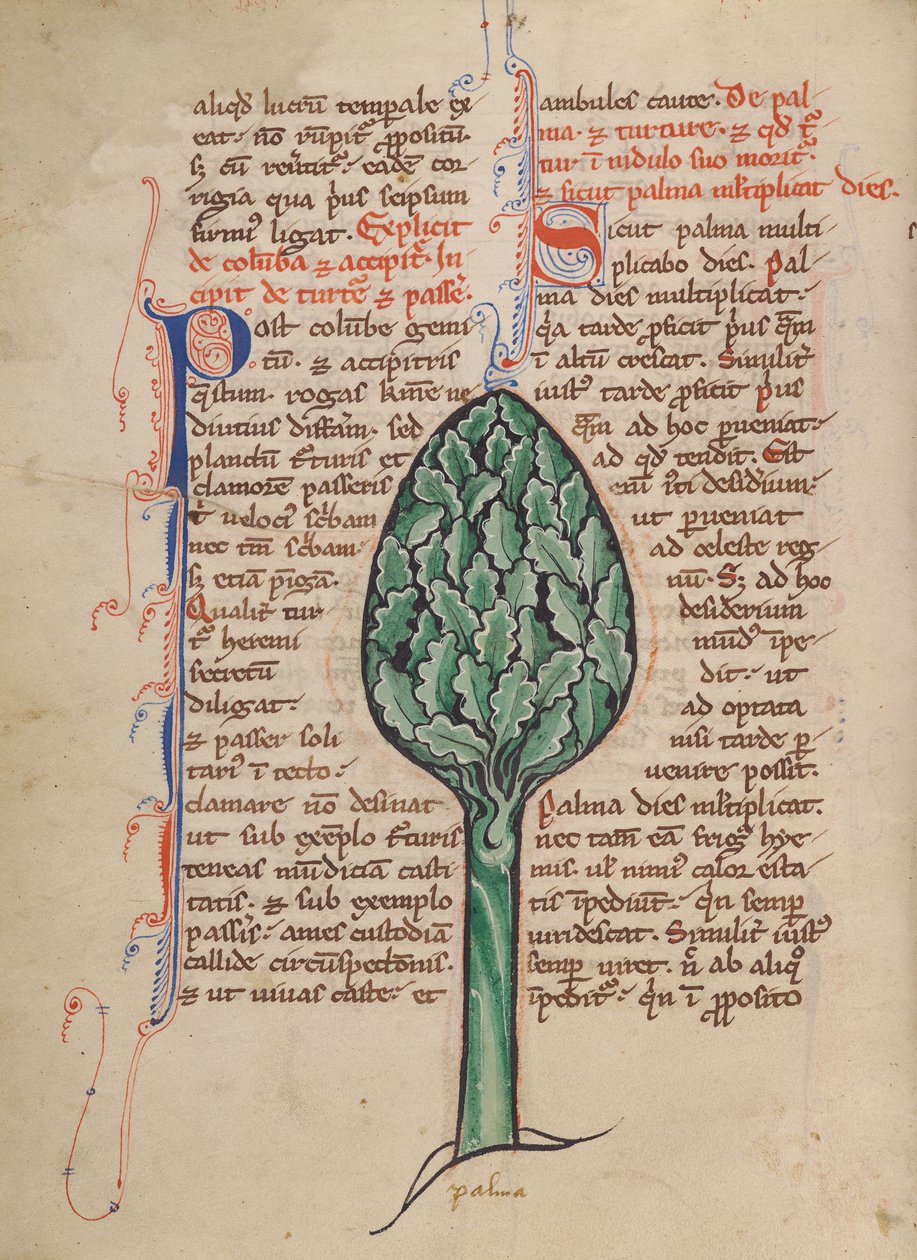 aliqd lucrū temꝑale ex-
eat· nō rūpit᷑ ꝓpositū·
ſꝫ cū reūtit᷑· eadē cor-
rigia qua pͥus seipsum
firmiꝰ ligat. Explicit
de colūba ⁊ accipit᷑. In-
cipit de turt᷑e ⁊ passe᷑.
Post colūbe gemi-
tū· ⁊ accipitris
q̄stum· rogas kͥme ne
diutius diffa᷑m· sed
planctū t᷑turis et
clamorē passeris
t᷑ velociꝰ sc᷑bam
nec tm̄ sc᷑bam·
ſꝫ etiā pīgā·
Qualit᷑ tur-
t᷑ heremi
secretū
diligat·
⁊ passer soli-
tariꝰ ī tecto·
clamare nō desinat
ut sub exēplo t᷑turis
teneas mūdiciā casti-
tatis· ⁊ sub exemplo
passis᷑· ames custodiā
callide circūspectōnis·
⁊ ut vivas caste· et
ambules caute. De pal-
ma· ⁊ turture· ⁊ qd t᷑-
tur ī nidulo suo morit᷑·
⁊ sicut palma mlt̄iplicat dies.
Sicut palma multi-
plicabo dies. Pal-
ma dies multiplicat·
qͥa tarde ꝓficit pͥus qͣm
ī altū crescat. Similit᷑
iustꝰ tarde ꝓficit pͥus
qͣm ad hoc ꝑueniat·
ad qd tendit. Est
enī iīti desid᷑ium·
ut ꝑveniat
ad celeste reg-
nū· Sꝫ ad hoc
desiderium
mūdꝰ īpe-
dit· ut
ad optata
nisi tarde ꝑ-
venire possit.
Palma dies mlt̄iplicat.
nec tam̄ eā frigꝰ hye-
mis· ul̄ nimiꝰ calor esta-
tis īpediūt· qͥn semꝑ
viridescat. Similit᷑ iustꝰ
semꝑ viret· n̄ ab aliqͦ
īpedit᷑· qͥn ī ꝓposito
palma